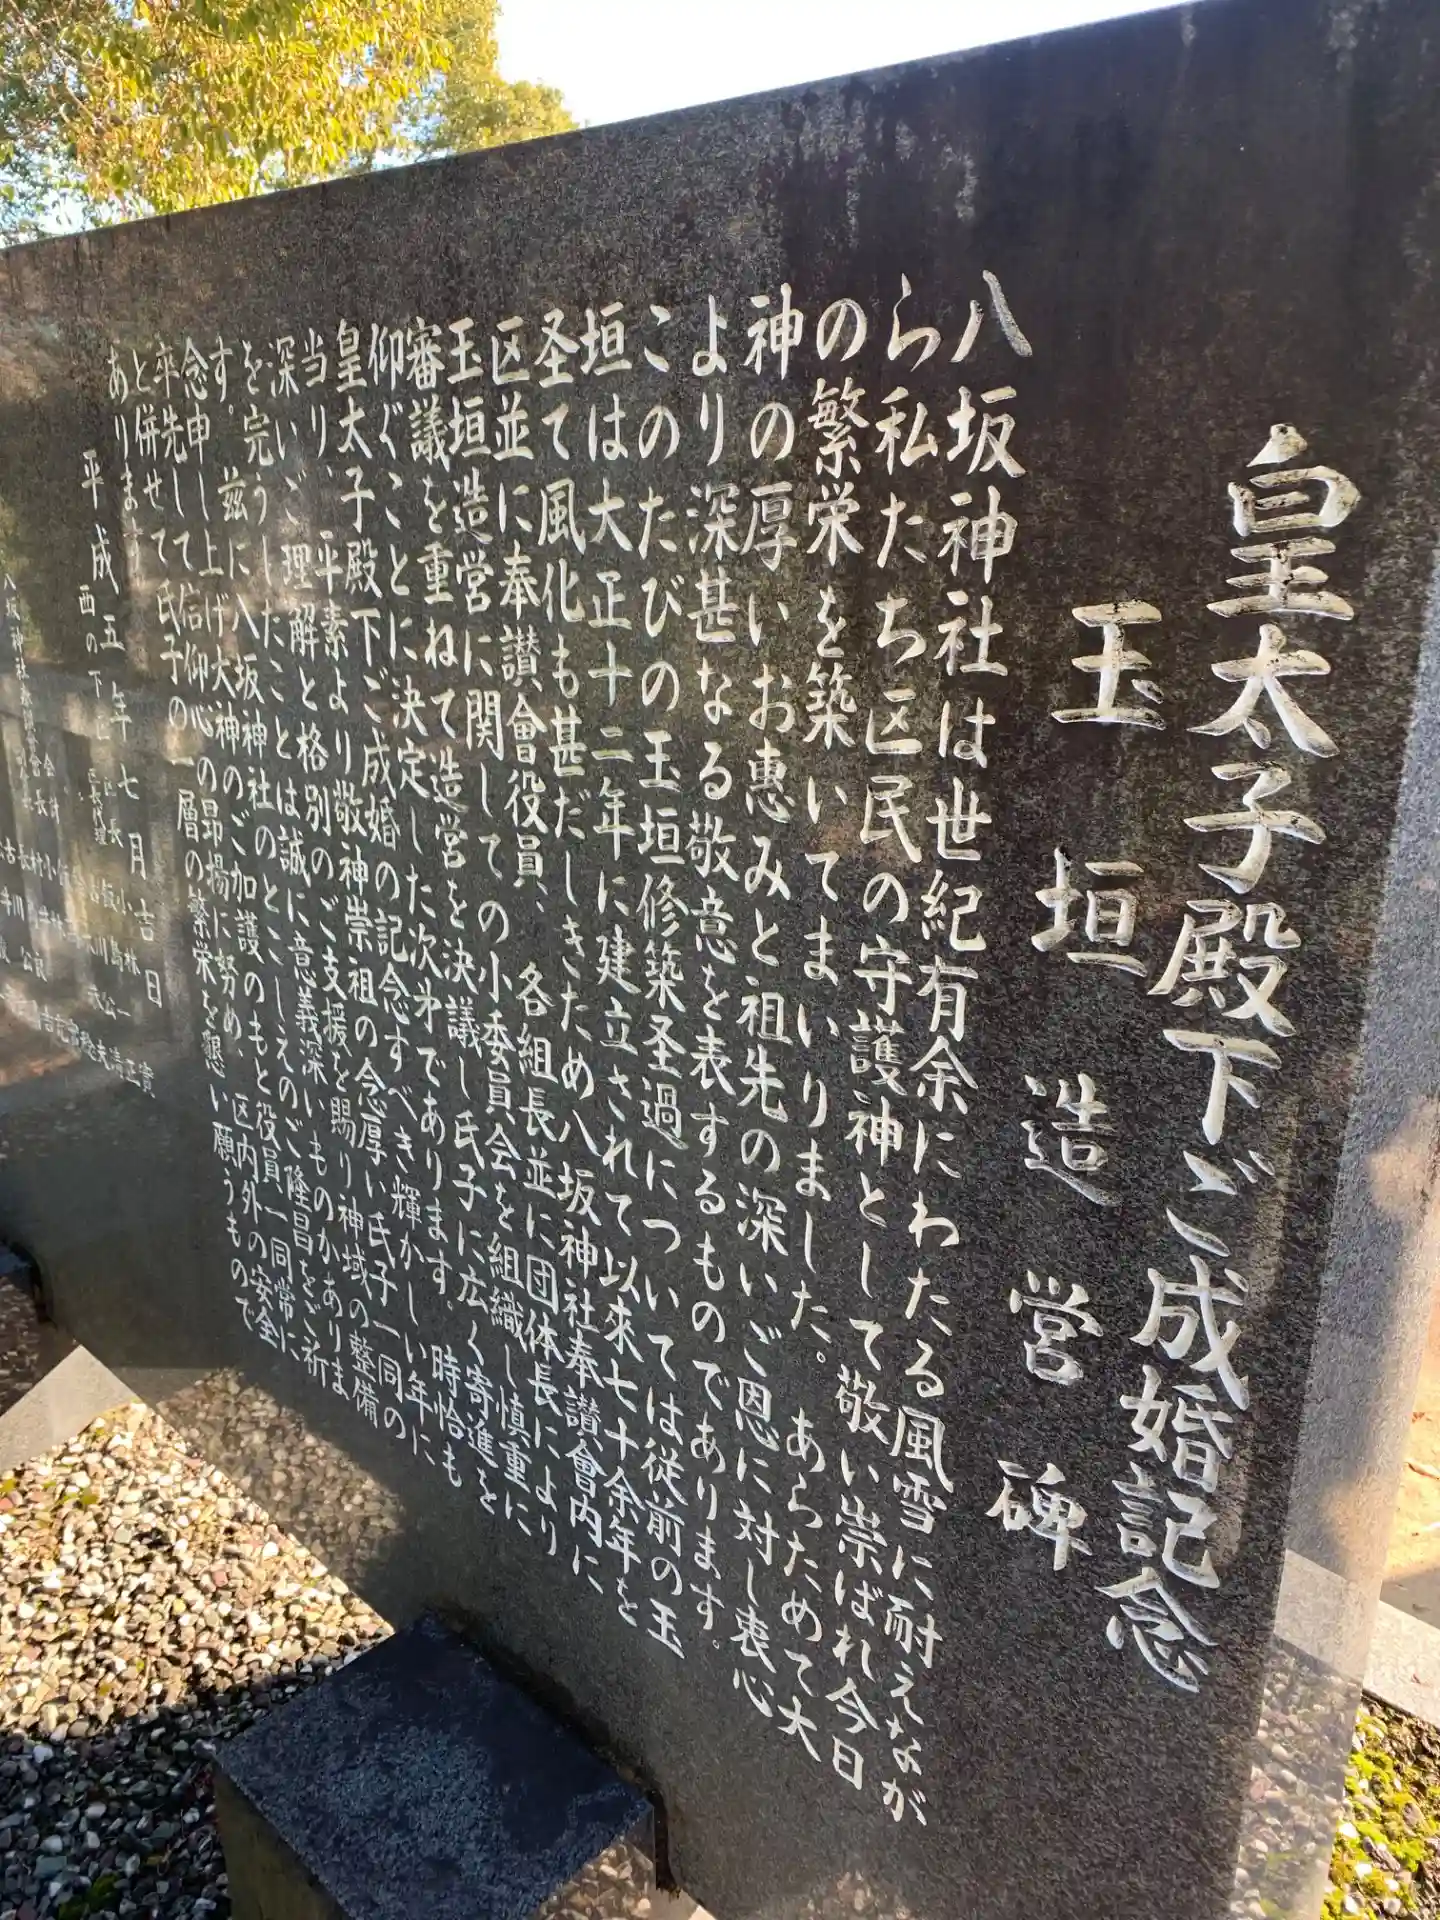 皇太子殿下ご成婚記念
玉垣造営碑
八坂神社は世紀有余にわたる風雪に耐えなが
ら私たち区民の守護神として敬い崇ばれ今日
の繁栄を築いてまいりました。あらためて大
神の厚いお恵みと祖先の深いご恩に対し衷心
より深甚なる敬意を表するものであります。
このたびの玉垣修築圣過については従前の玉
垣は大正十二年に建立されて以来七十余年を
圣て風化も甚だしきため八坂神社奉讃會内に
区並に奉讃會役員、各組長並に団体長により
玉垣造営に関しての小委員会を組織し慎重に
審議を重ねて造営を決議し氏子に広く寄進を
仰ぐことに決定した次第であります。時恰も
皇太子殿下ご成婚の記念すべき輝かしい年に
当り、平素より敬神崇祖の念厚い氏子一同の
深いご理解と格別のご支援を賜り神域の整備
を完うしたことは誠に意義深いものがありま
す。茲に八坂神社のとこしえのご隆昌をご祈
念申し上げ大神のご加護のもと役員一同常に
卒先して信仰心の昻揚に努め、区内外の安全
と併せて氏子の一層の繁栄を懇い願うもので
あります
平成五年七月吉日
西の下区
区長
区長代理
八坂神社奉讃會會長
会計